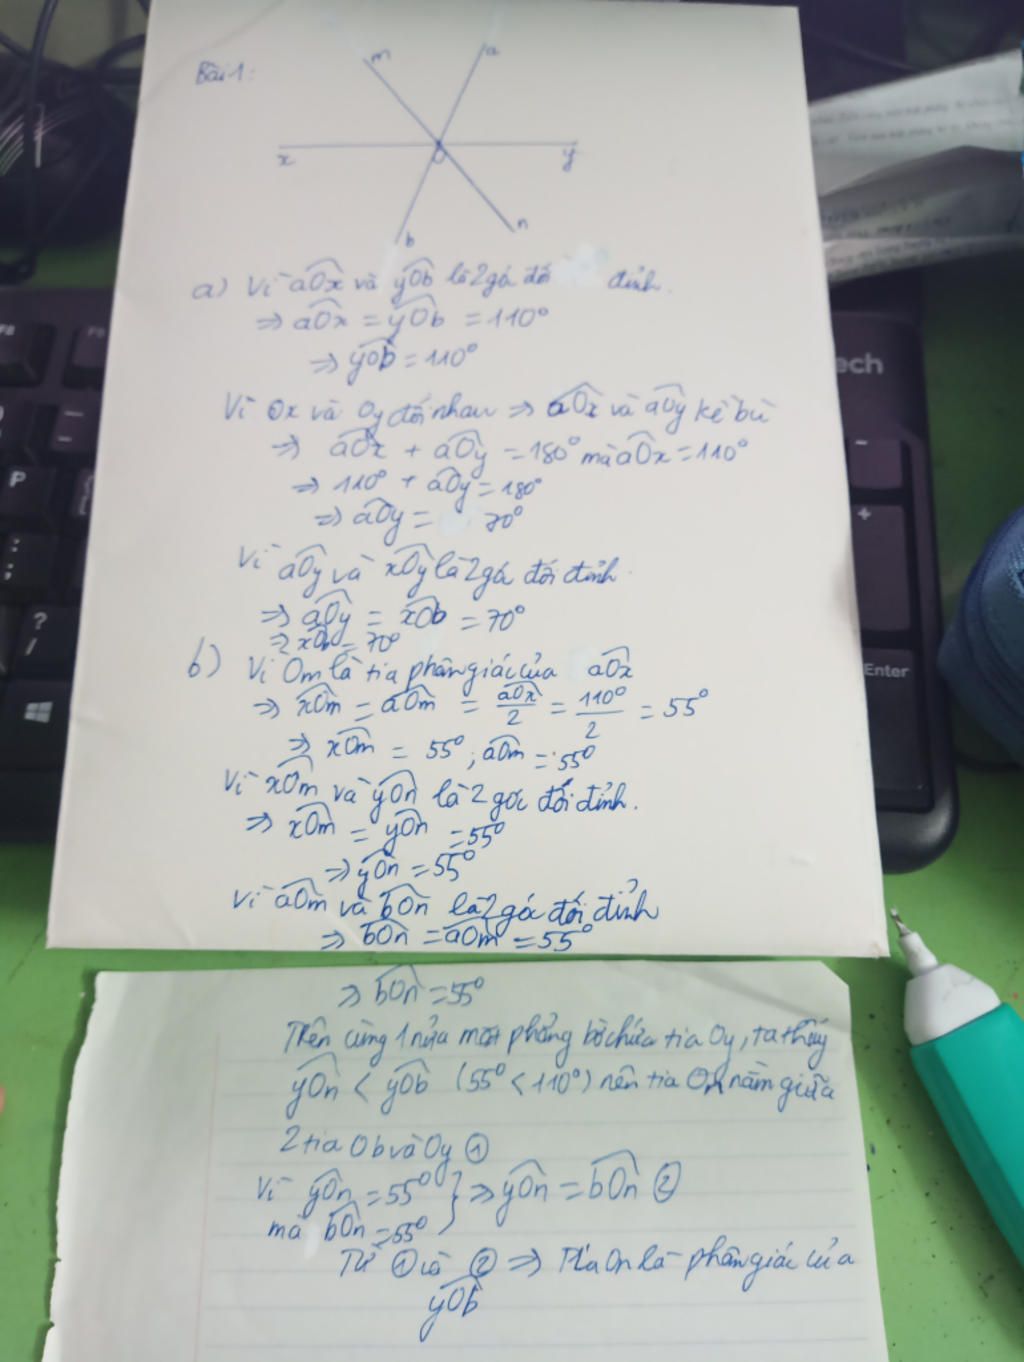 Bài 1:
m
a
x
O
y
b
n
a) Vì aOx và yOb là 2 góc đối đỉnh.
⇒ aOx = yOb = 110°
⇒ yOb = 110°
Vì Ox và Oy đối nhau ⇒ aOx và aOy kề bù
⇒ aOx + aOy = 180° mà aOx = 110°
⇒ 110° + aOy = 180°
⇒ aOy = 70°
Vì aOy và xOy là 2 góc đối đỉnh.
⇒ aOy = xOb = 70°
⇒ xOb = 70°
b) Vì Om là tia phân giác của aOx
⇒ xOm = aOm = aOx/2 = 110°/2 = 55°
⇒ xOm = 55°; aOm = 55°
Vì xOm và yOn là 2 góc đối đỉnh.
⇒ xOm = yOn = 55°
⇒ yOn = 55°
Vì aOm và bOn là 2 góc đối đỉnh
⇒ bOn = aOm = 55°
⇒ bOn = 55°
Trên cùng 1 nửa mặt phẳng bờ chứa tia Oy, ta thấy
yOn < yOb (55° < 110°) nên tia On nằm giữa
2 tia Ob và Oy ①
Vì yOn = 55° } ⇒ yOn = bOn ②
mà bOn = 55°
Từ ① và ② ⇒ Tia On là phân giác của
yOb
F8
P
?
/
-
+
Enter
ech